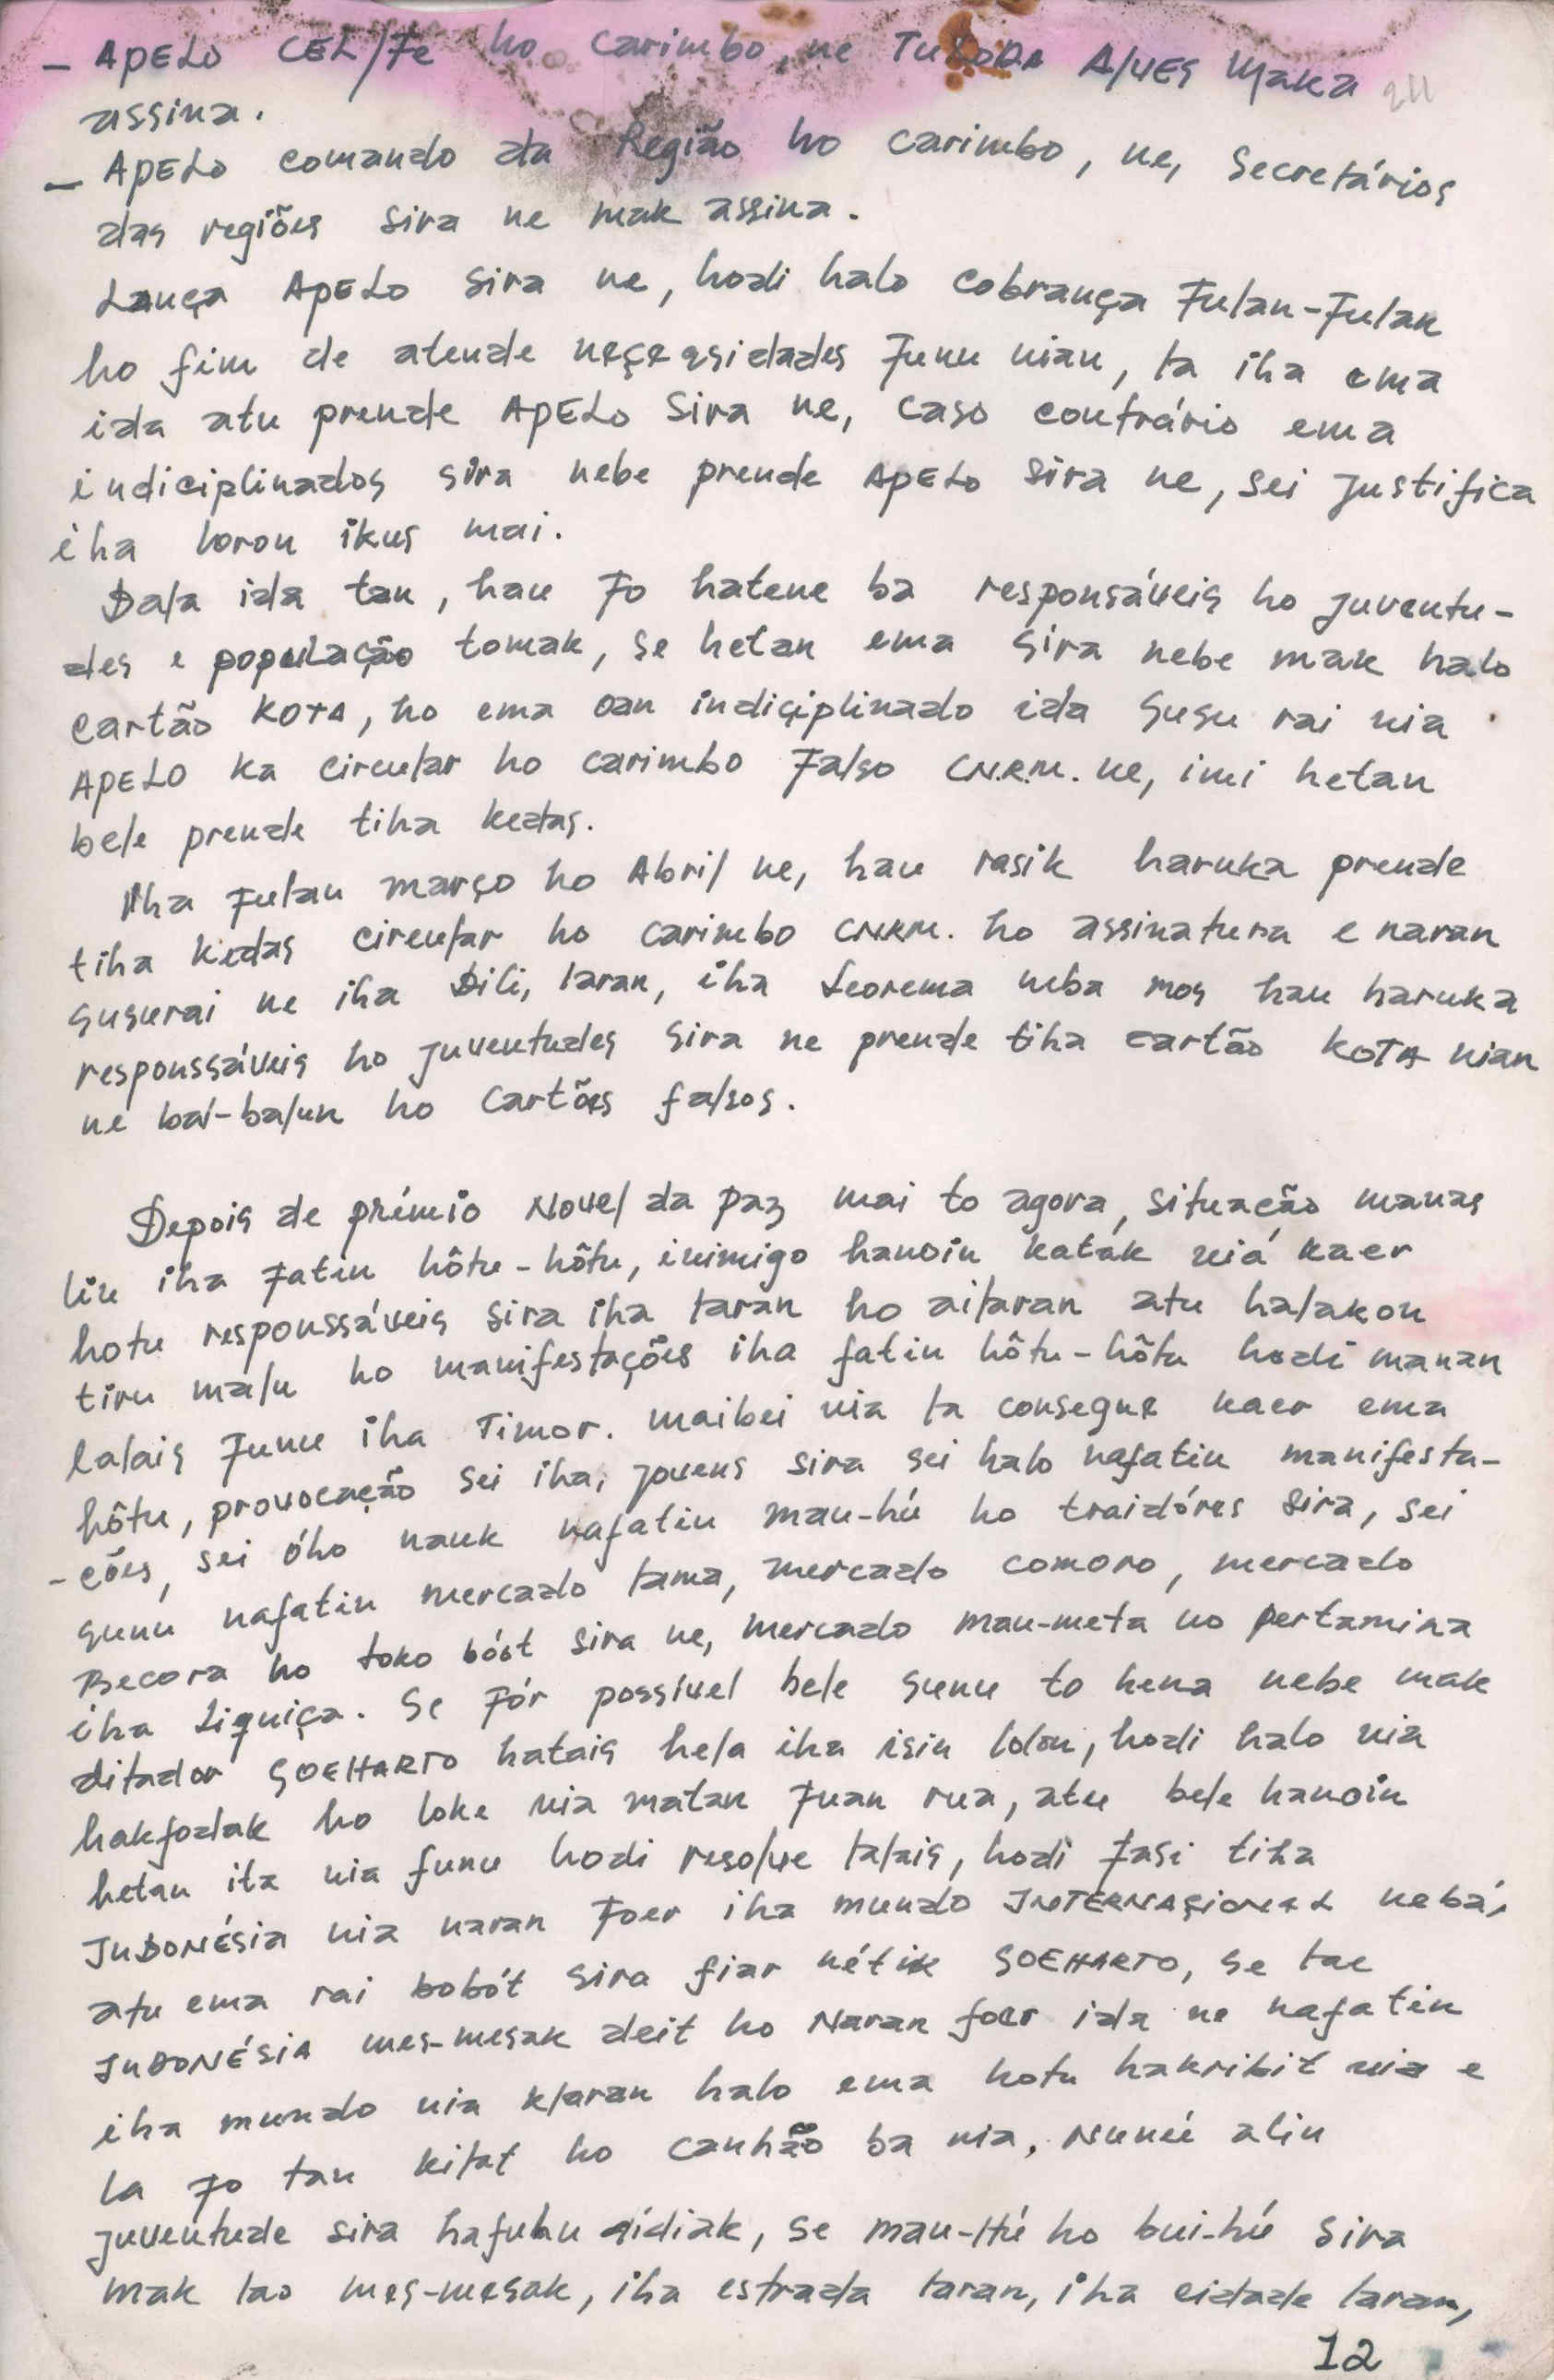 - APELO CEL/FE ho carimbo, ne TULODA ALVES maka
assina.
- APELO comando da Região ho carimbo, ne, Secretários
das regiões sira ne mak assina.
Lança APELO sira ne, hodi halo cobrança Fulan-Fulan
ho fim de atende neçeqsidades Funu nian, la iha ema
ida atu prende APELO sira ne, caso contrário ema
indiciplinados sira nebe prende APELO sira ne, sei justifica
iha loron ikus mai.
Dala ida tan, hau Fo hatene ba responsáveis ho juventu-
des e população tomak, se hetan ema sira nebe mak halo
cartão KOTA, ho ema oan indiçiplinado ida susu rai nia
APELO ka circular ho carimbo Falso CN.R.M. ne, imi hetan
bele prende tiha kedas.
Iha Fulan março ho Abril ne, hau rasik haruka prende
tiha kedas circular ho carimbo CNRM. ho assinatura e naran
susurai ne iha Dili, laran, iha Leorema neba mos hau haruka
responssáveis ho juventudes sira ne prende tiha cartão KOTA nian
ne bal-balun ho cartões falsos.
Depois de prémio Novel da paz mai to agora, situação manas
liu iha Fatin hôtu-hôtu, inimigo hanoin katák niá kaer
hotu responssáveis sira iha laran ho ailaran atu halakon
tiru malu ho manifestações iha fatin hôtu-hôtu hodi manan
lalais Funu iha Timor. maibei nia la consegue kaer ema
hôtu, provocação sei iha, jovens sira sei halo nafatin manifesta-
-ções, sei óho nauk nafatin mau-hú ho traidóres sira, sei
sunu nafatin mercado lama, mercado comoro, mercado
Becora ho toko bóót sira ne, mercado mau-meta no pertamina
iha Liquiça. Se Fór possível bele sunu to hena nebe mak
ditador SOEHARTO hatais hela iha isin lolon, hodi halo nia
hakfodak ho loke nia matan Fuan rua, atu bele hanoin
hetan ita nia funu hodi resolve lalais, hodi Fasi tiha
INDONÉSIA nia naran Foer iha mundo INTERNAÇIONAL nebá,
atu ema rai bobót sira fiar nétik SOEHARTO, se lae
INDONÉSIA mes-mesak deit ho Naran foer ida ne nafatin
iha mundo nia klaran halo ema hotu hakribit nia e
la Fo tan kilat ho canhão ba nia, Nuneé alin
juventude sira hafuhu didiak, se mau-Hú ho bui-hú sira
mak lao mes-mesak, iha estrada laran, iha cidade laran,
12